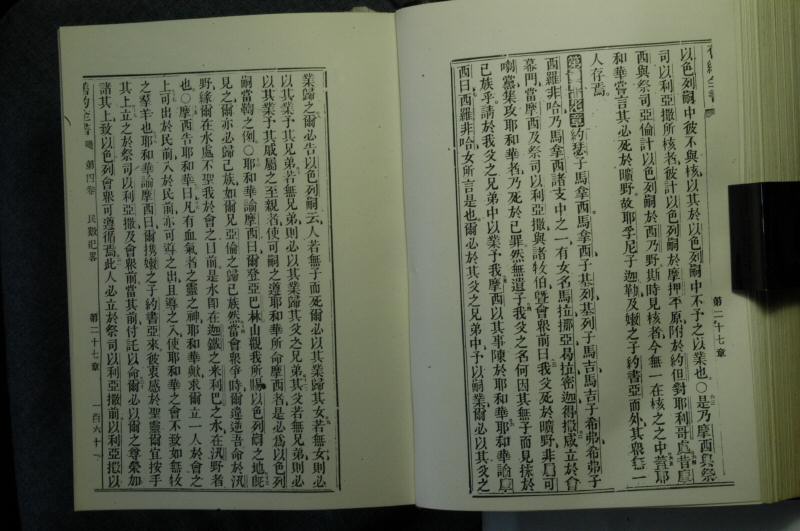 以色列嗣中彼不與核以其於以色列嗣中不予之以業也○是乃摩西與祭
司以利亞撒所核者彼計以色列嗣於摩押平原附於約但對耶利哥處昔
西與祭司亞倫計以色列嗣於西乃野斯時見核者今無一在核之之中蓋耶
和華嘗言其必死於曠野故耶孚尼子迦勒及嫩之子約書亞而外其眾無一
人存焉
第二十七章約瑟子馬拿西馬拿西子馬吉馬吉子希弗希弗子
西羅非哈乃馬拿西諸支中之一有女名馬拉挪亞曷拉密迦得撒咸立於會
幕門當摩西及祭司以利亞撒與諸牧伯暨會眾前曰我父死於曠野非與可
喇黨集攻耶和華者乃死於己罪然無遺子我父之名何因其無子而見抹於
己族乎請於我父之兄弟中以業予我摩西以其事陳於耶和華耶和華諭摩
西曰西羅非哈女所言是也爾必於其父之兄弟中予以嗣業爾必以其父之
第二十七章
業歸之爾必告以色列嗣云人若無子而死爾必以其業歸其女若無女則必
以其業予其兄弟若無兄弟則必以其業歸其父之兄弟其父若無兄弟則必
以其業予其戚屬之至親者使可嗣之遵耶和華所命摩西者是必為以色列
嗣當守之例○耶和華諭摩西曰爾登亞巴林山觀我所賜以色列嗣之地既
見之爾亦必歸己族如爾兄亞倫之歸己族然當會眾爭時爾違逆吾命於汛
野緣爾在水處不聖我於會之目前是水即在迦鐵之米利巴之水在汛野者
也摩西告耶和華曰凡有血氣者之靈之神耶和華歟求爾立一人於會之
上可出於民前入於民前亦可導之出且導之入使耶和華之會不致如無牧
之羣羊也耶和華諭摩西曰爾攜嫩之子約書亞來彼衷感於聖靈爾宜按手
其上立之於祭司以利亞撒及會眾前當其前付託以命爾必以爾之尊榮加
諸其上致以色列會眾可遵循焉此人必立於祭司以利亞撒前以利亞撒以
舊約全書 第四卷 民數紀畧 第二十七章 一百六十一